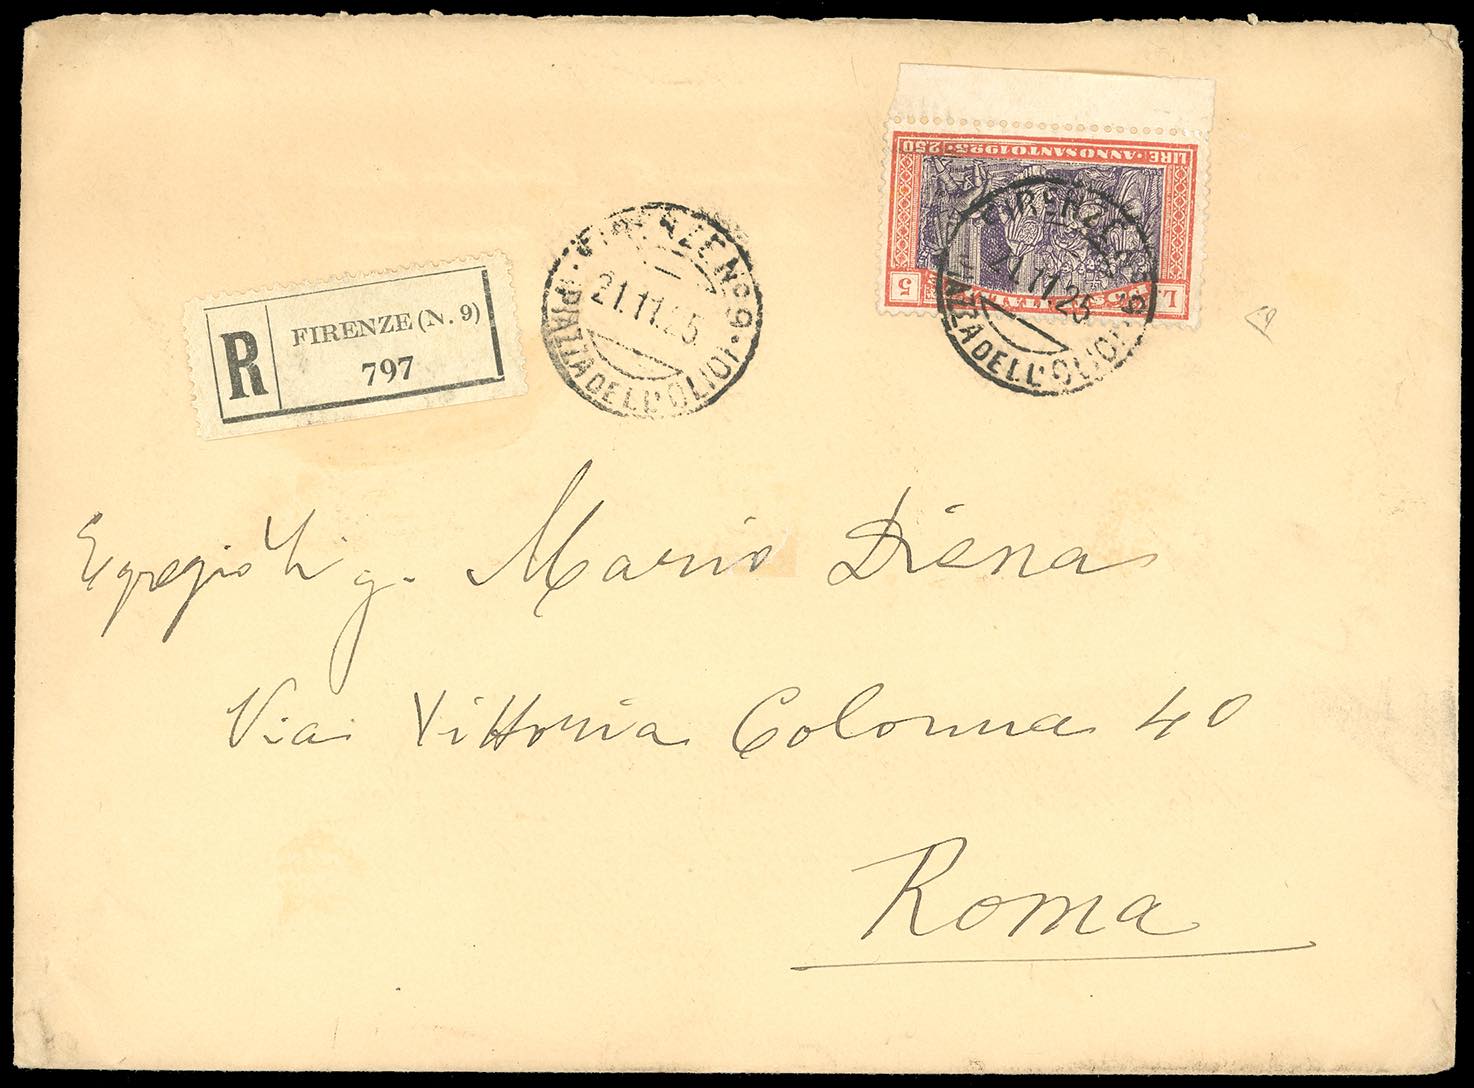 LIRE · ANNO SANTO 1925 · 2.50
L. 5
FIRENZE Nº 9
21.11.25
(PIAZZA DELL'OLIO)
FIRENZE Nº 9
21.11.25
(PIAZZA DELL'OLIO)
R FIRENZE (N. 9)
797
Egregio Sig. Mario Diena
Via Vittoria Colonna 40
Roma